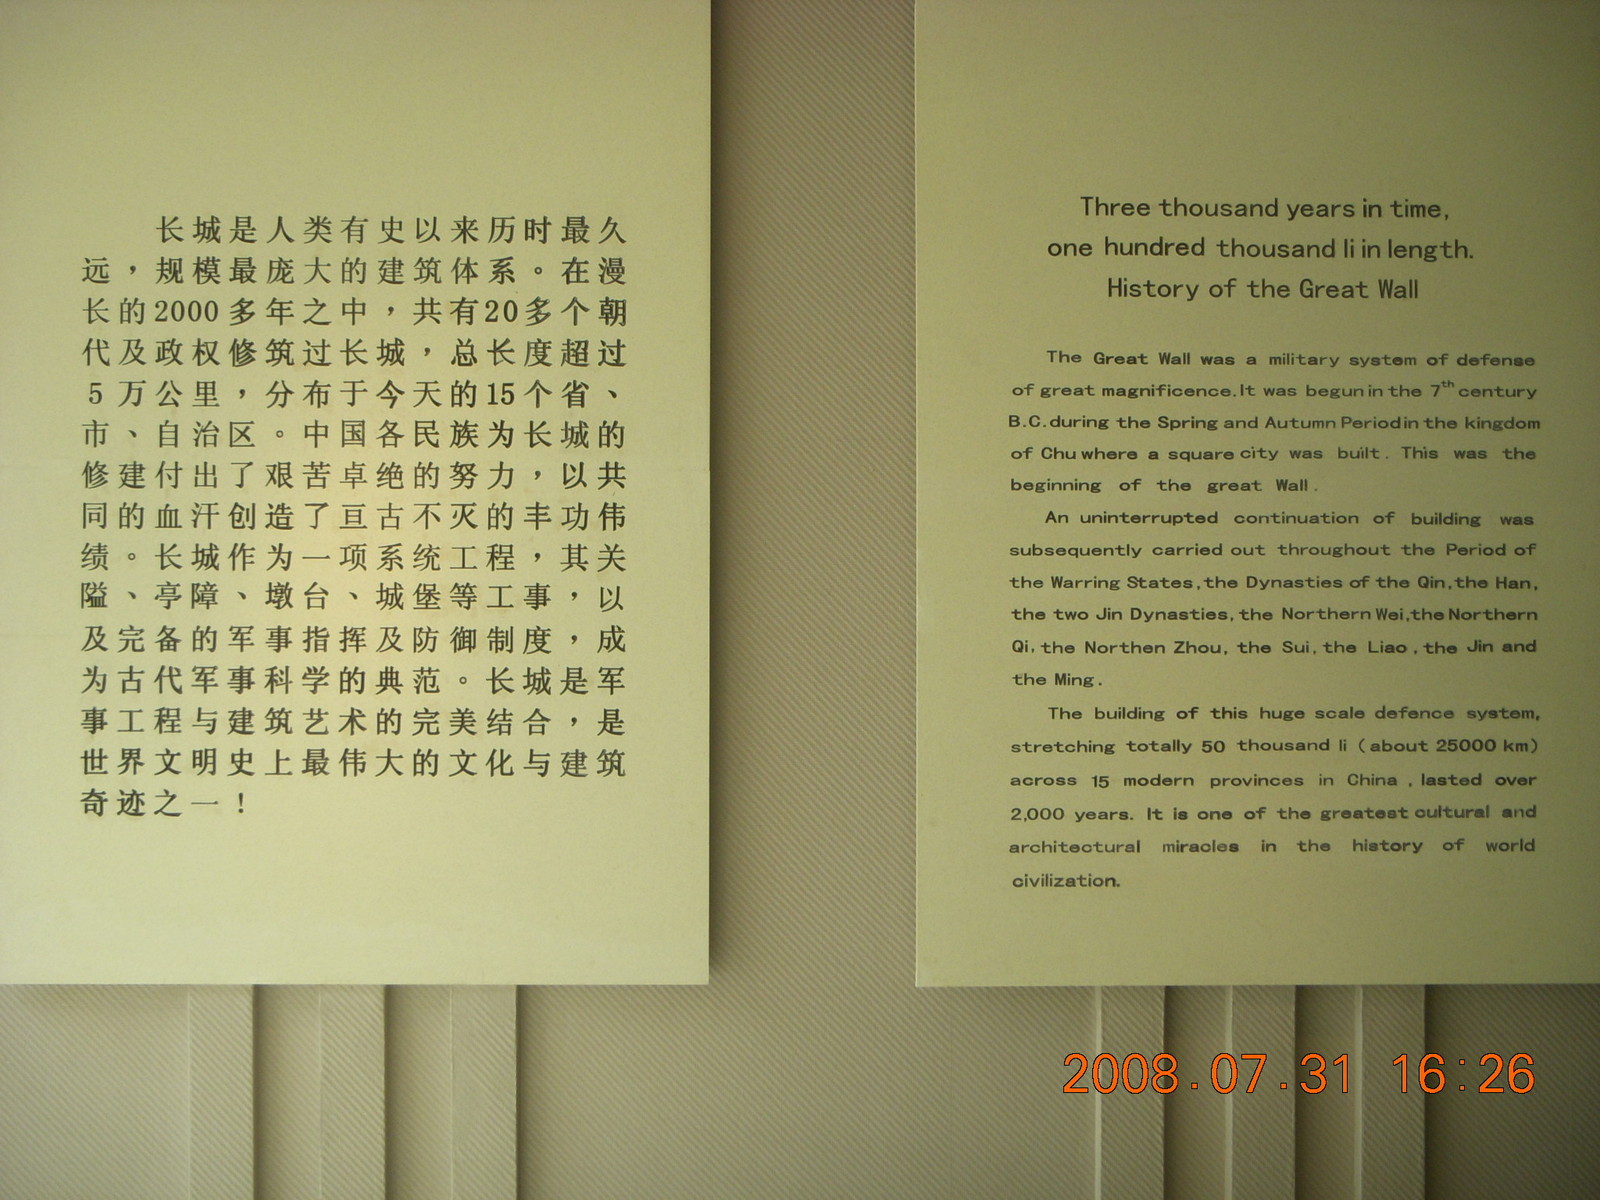 长城是人类有史以来历时最久
远，规模最庞大的建筑体系。在漫
长的2000多年之中，共有20多个朝
代及政权修筑过长城，总长度超过
5万公里，分布于今天的15个省、
市、自治区。中国各民族为长城的
修建付出了艰苦卓绝的努力，以共
同的血汗创造了亘古不灭的丰功伟
绩。长城作为一项系统工程，其关
隘、亭障、墩台、城堡等工事，以
及完备的军事指挥及防御制度，成
为古代军事科学的典范。长城是军
事工程与建筑艺术的完美结合，是
世界文明史上最伟大的文化与建筑
奇迹之一！
Three thousand years in time,
one hundred thousand li in length.
History of the Great Wall
The Great Wall was a military system of defense
of great magnificence.It was begun in the 7th century
B.C.during the Spring and Autumn Period in the kingdom
of Chu where a square city was built. This was the
beginning of the great Wall.
An uninterrupted continuation of building was
subsequently carried out throughout the Period of
the Warring States,the Dynasties of the Qin,the Han,
the two Jin Dynasties, the Northern Wei,the Northern
Qi, the Northen Zhou, the Sui, the Liao, the Jin and
the Ming.
The building of this huge scale defence system,
stretching totally 50 thousand li (about 25000 km)
across 15 modern provinces in China , lasted over
2,000 years. It is one of the greatest cultural and
architectural miracles in the history of world
civilization.
2008.07.31 16:26